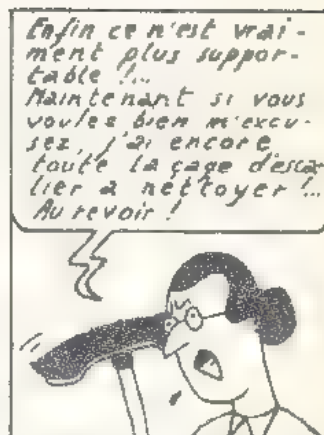 Enfin ce n'est vrai-
ment plus suppor-
table !...
Maintenant si vous
voulez bien m'excu-
sez, j'ai encore
toute la cage d'esca
lier à nettoyer !...
Au revoir !